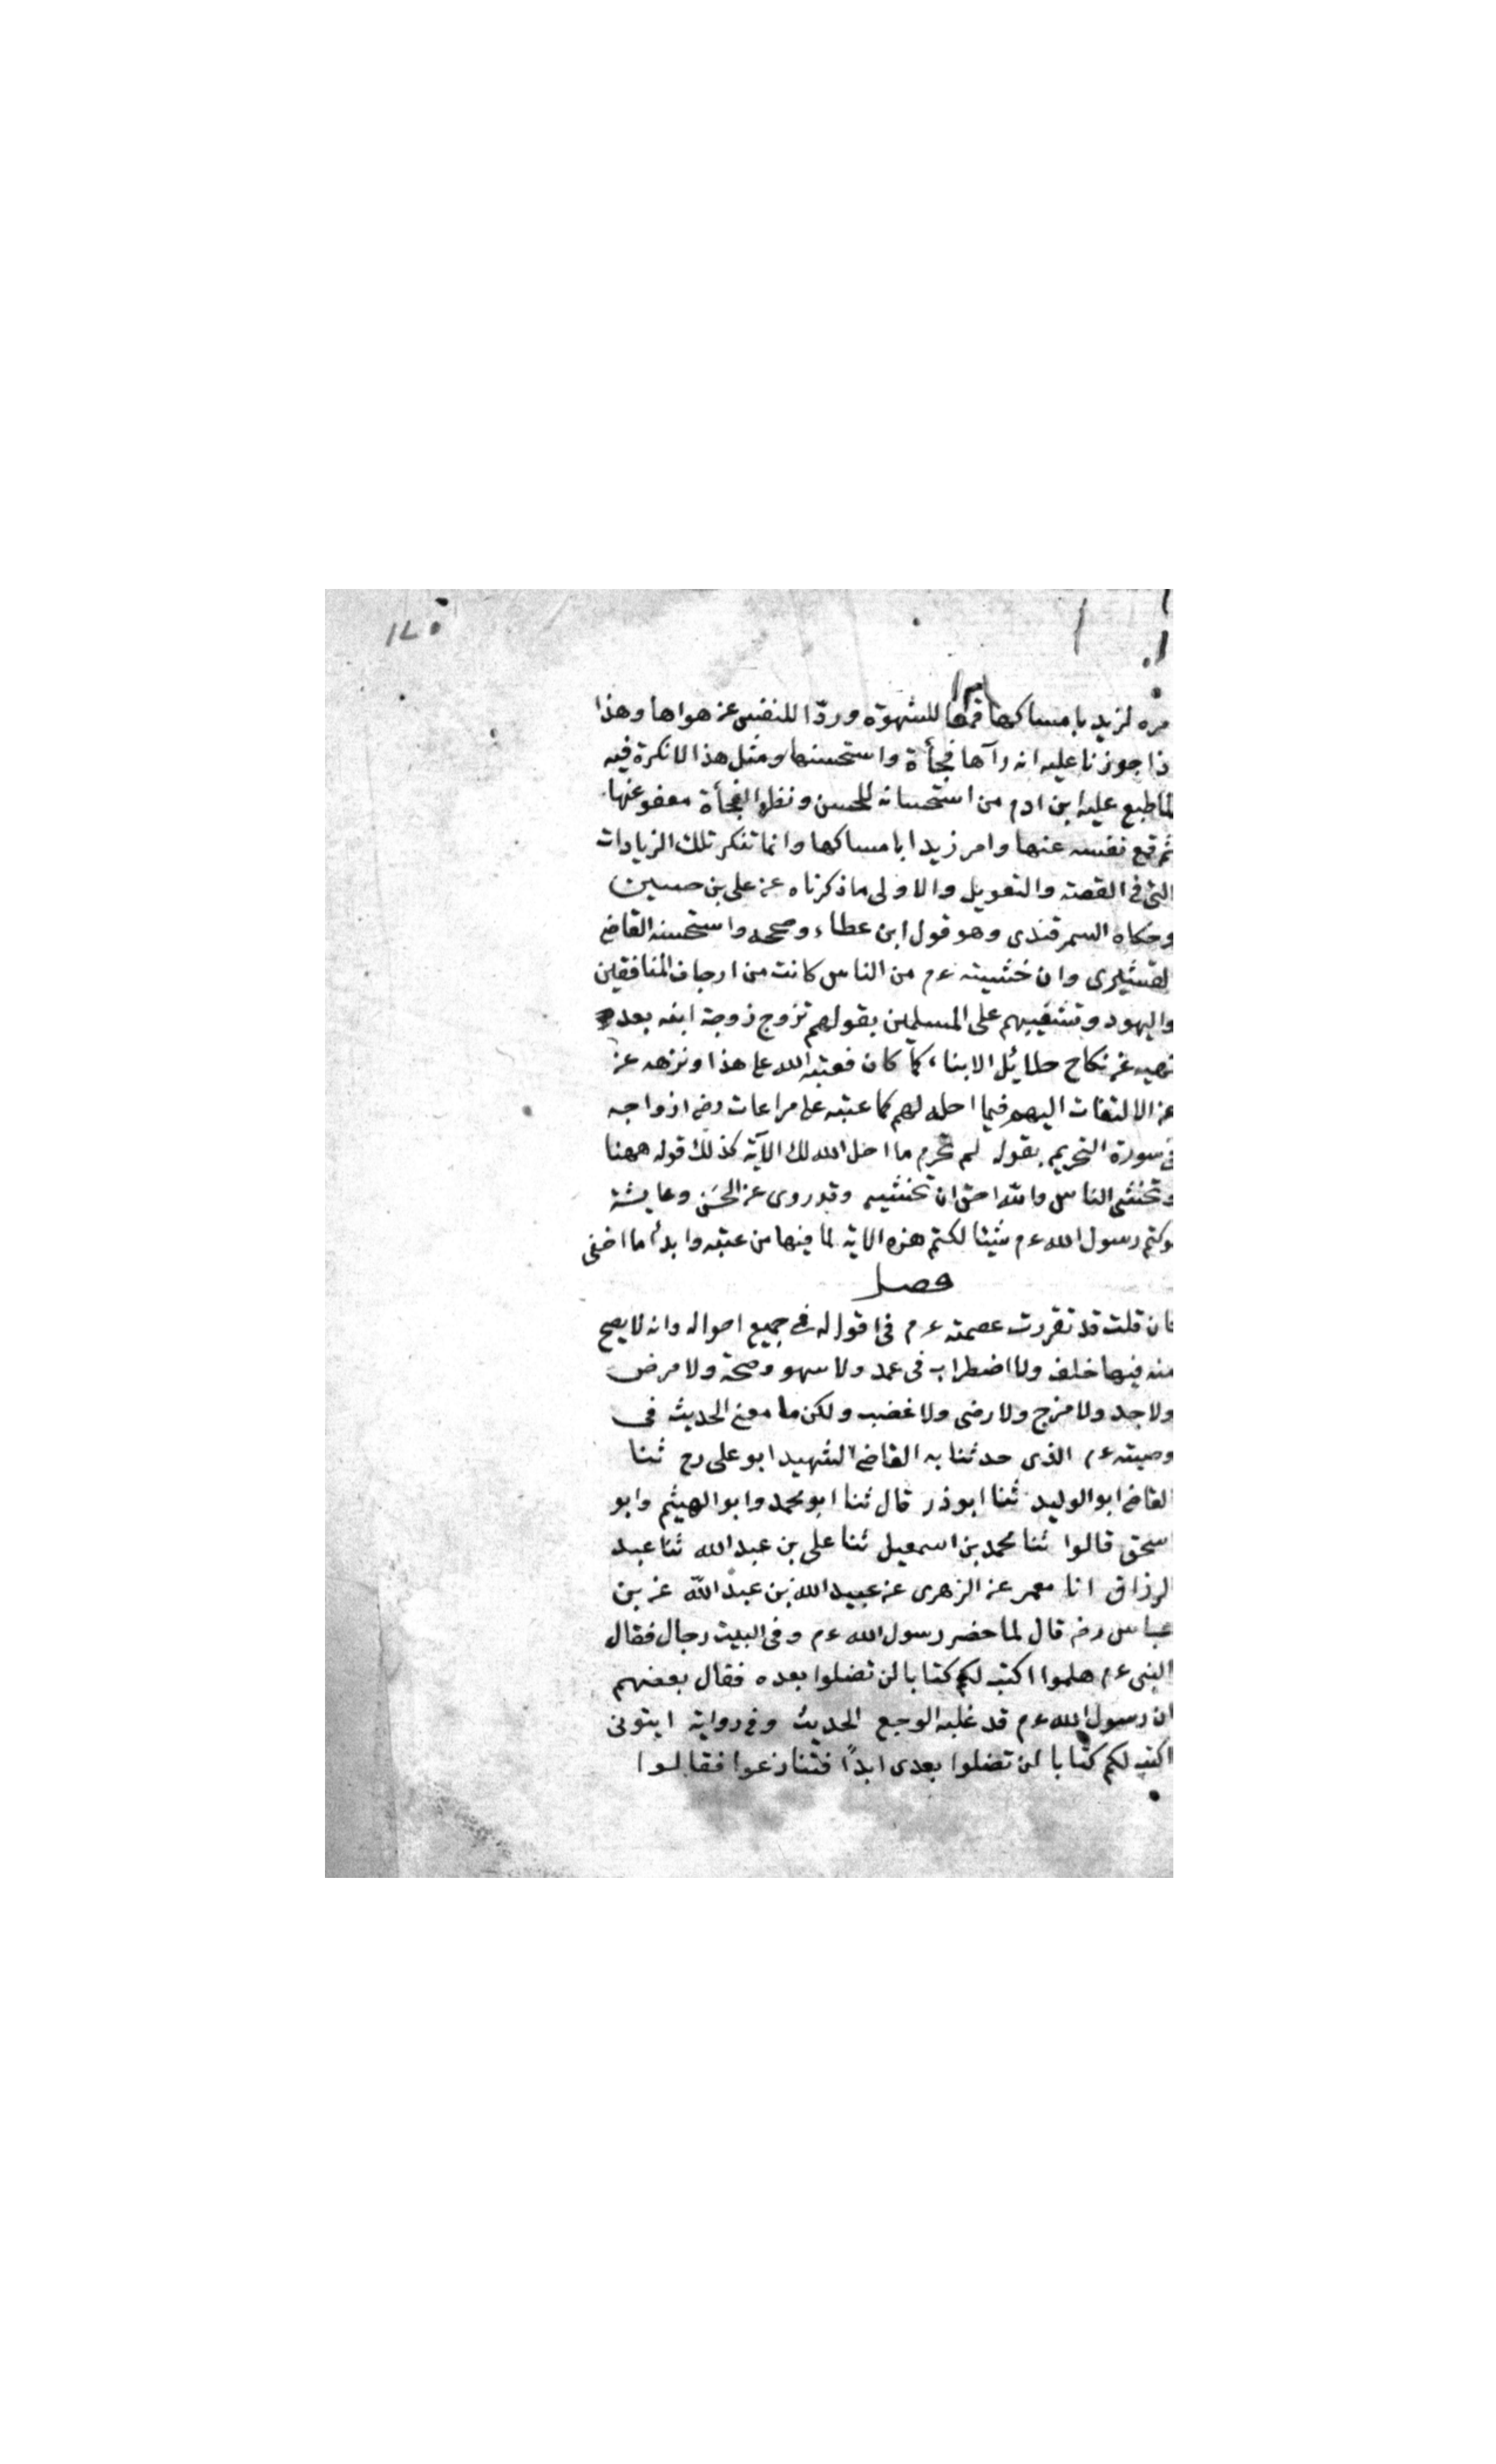 ١٢٥
مره لزيد بامساكها قمعا للشهوة وردّا للنفس عن هواها وهذا
ذا جوزنا عليه انه رآها فجأة واستحسنها ومثل هذا لا نكرة فيه
لما طبع عليه ابن ادم من استحسانه للحسن ونظرة الفجأة معفو عنها
ثم قمع نفسه عنها وامر زيدا بامساكها وانما تنكر تلك الزيادات
التي في القصة والتعويل والاولى ما ذكرناه عن علي بن حسين
وحكاه السمرقندي وهو قول ابن عطاء وصححه واستحسنه القاضي
القشيري وان خشيته ءم من الناس كانت من ارجاف المنافقين
واليهود وتشغيبهم على المسلمين بقولهم تزوج زوجة ابنه بعد
نهيه عن نكاح حلائل الابناء كما كان فعتبه الله على هذا ونزهه عن
عن الالتفات اليهم فيما احله لهم كما عتبه على مراعات رضى ازواجه
في سورة التحريم بقوله لم تحرم ما احل الله لك الآية كذلك قوله ههنا
وتخشى الناس والله احق ان تخشيه وقد روى عن الحسن وعايشة
لوكتم رسول الله ءم شيئا لكتم هذه الاية لما فيها من عتبه وابداء ما اخفى
فصل
فان قلت قد تقررت عصمته ءم في اقواله في جميع احواله وانه لا يصح
منه فيها خلف ولا اضطراب في عمد ولا سهو وصحة ولا مرض
ولا جد ولا مزح ولا رضى ولا غضب ولكن ما معنى الحديث في
وصيته ءم الذي حدثنا به القاضي الشهيد ابو على رح ثنا
القاضي ابو الوليد ثنا ابوذر قال ثنا ابو محمد وابو الهيثم وابو
اسحق قالوا ثنا محمد بن اسمعيل ثنا على بن عبد الله ثنا عبد
الرزاق انا معمر عن الزهرى عن عبيد الله بن عبد الله عن بن
عباس رض قال لما حضر رسول الله ءم وفي البيت رجال فقال
النبي ءم هلموا اكتب لكم كتابا لن تضلوا بعده فقال بعضهم
ان رسول الله ءم قد غلبه الوجع الحديث وفي رواية ايتونى
اكتب لكم كتابا لن تضلوا بعدى ابدًا فتنازعوا فقالوا